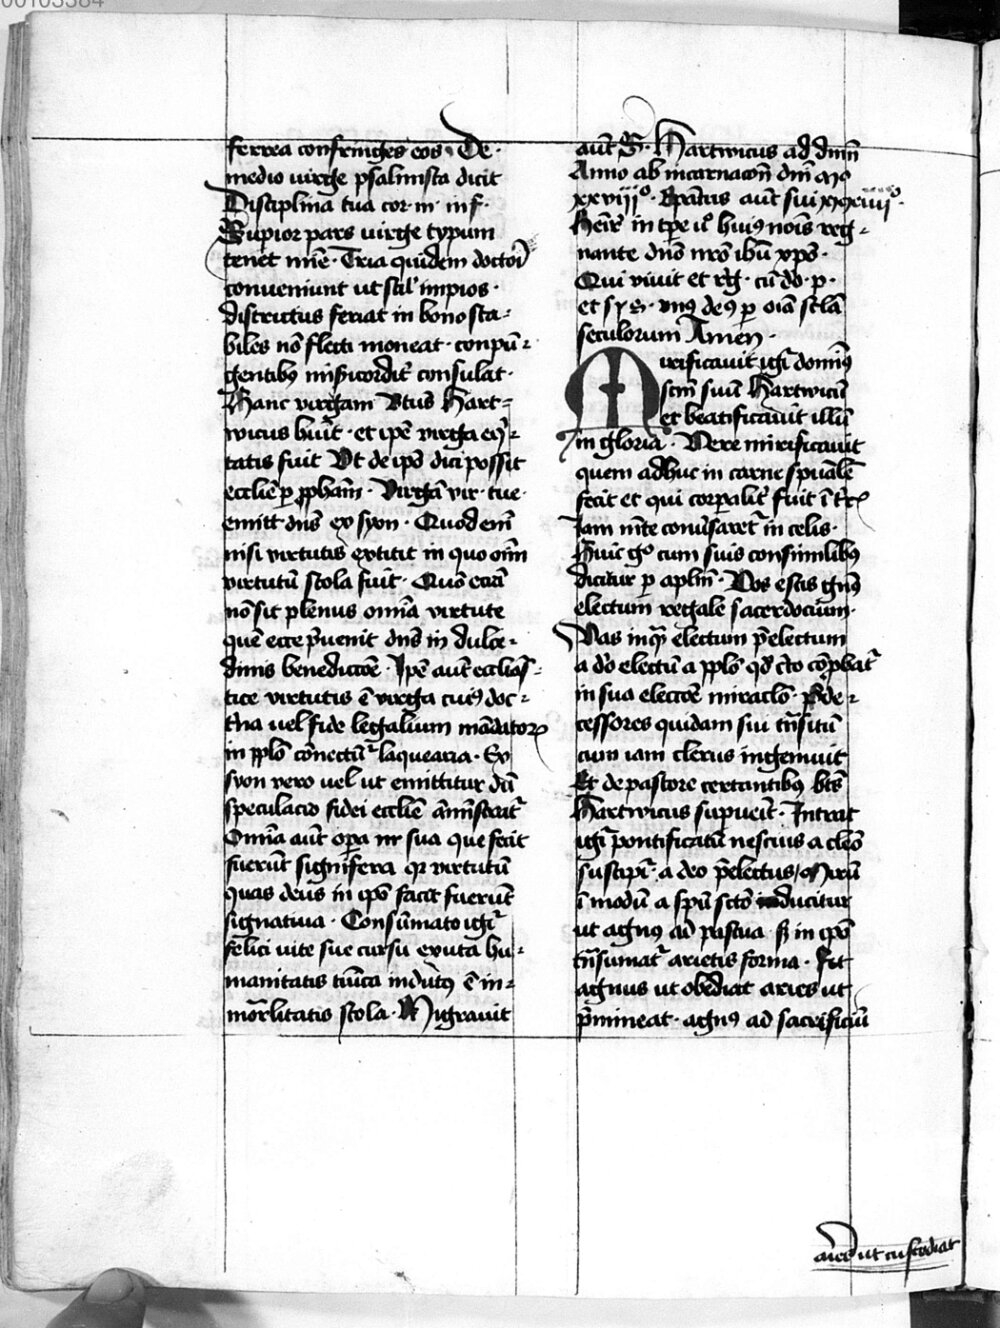 00103384
ferrea confringes eos. De
medio uirge psalmista dicit
Disciplina tua cor. m. inf.
Supior pars uirge typum
tenet mīe. Tria quidem doctorī
conueniunt ut scil' impios.
districtus feriat in bono sta-
biles nō flecti moneat. conpū-
gentibꝰ misicordit' consulat.
Hanc virgam Btūs Hart-
wicus hūit. et ipē virga eq̄-
tatis fuit Vt de ipō dici possit
ecclīe ꝑ ꝓpham. Virgā vir. tue.
emitt dn̄s ex syon. Quod enī
nisi virtutis extitit in quo om̄
virtutū scola fuit. Quō etiā
nō sit plenus om̄ia virtute
quē ecce p̄uenit dn̄s in dulce-
dinis benedictōe. Ipē aut ecclias-
tice virtutis ē virga cuiꝰ doc-
t'na uel fide legalium mādatorꝝ
in ꝓplō cōnectūt' laquearia. Ex
syon vero uel ut emittitur dū
speculacio fidei ecclīe amīstrat'
Om̄ia aut opa m̄ sua que fecit
fuerūt signifera q̄ virtutū
quas deus in ipō facit fuerūt
signatiua. Consūmato igit'
felici uite sue cursu exuta hu-
manitatis tūica indutꝰ ē in-
mōrlitatis stola. Migrauit
aut S. Hartwicus ad dnm̄
Anno ab incarnacōn dnī Mo
xxviijº. Epātus aut sui xxxiiijº.
Heīr' in tpe ijº huiꝰ nōis reg-
nante dnō nrō ihū xpō.
Qui viuit et reg. cū do. p.
et s p s. vnꝰ deꝰ ꝑ oīa sclā
seculorum Amen.
Mirificauit igit' dominꝰ
scm̄ suū Hartwicū
et beatificauit illū
in gloria. Vere mirificauit
quem adhuc in carne spūalē
fecit et qui corpalit' fuit ī t'ra
Iam mēte conūsaret' in celis.
Huic gº cum suis consimilibꝰ
dicitur ꝑ aplm̄. Vos estis genꝰ
electum regale sacerdocium.
Vas inq̄ electum p̄electum
a dō electū a ꝓplō qd̄ cito cōpbat'
in sua electōe miraclō. P̄de-
cessores quidam sui tn̄situ
cum iam clerus ingemuit
Et de pastore certantibꝰ btūs
Hartwicus supuēit. Intrat
igit' pontificatū nescius a cleō
suscipit'. a deo p̄electus. Mirū
ī modū a spū scō inducitur
ut agnꝰ ad pascua. s; in ipō
tn̄sumat' arietis forma. Fit
agnus ut obediat aries ut
p̄mineat. agnꝰ ad sacrificiū
aries ut custodiat